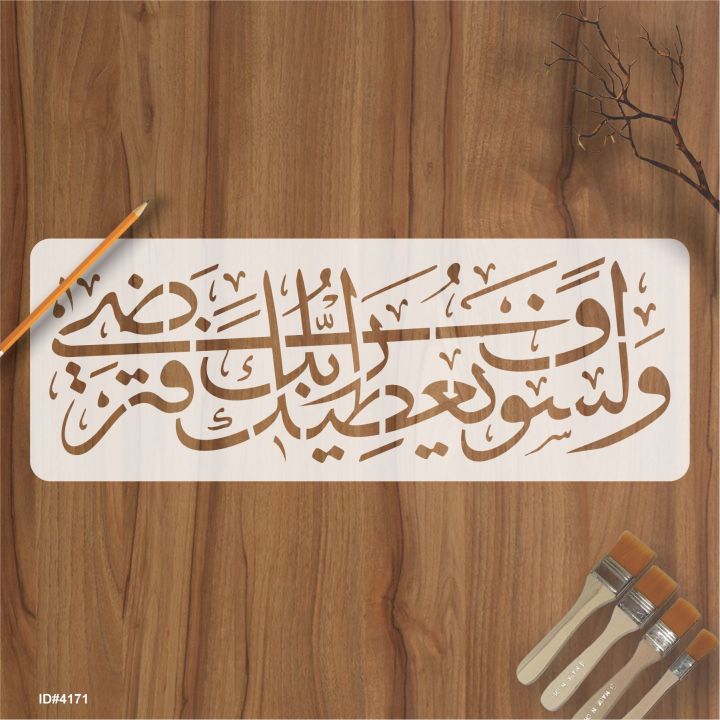 وَلَسَوْفَ يُعْطِيكَ رَبُّكَ فَتَرْضَىٰ
ID#4171